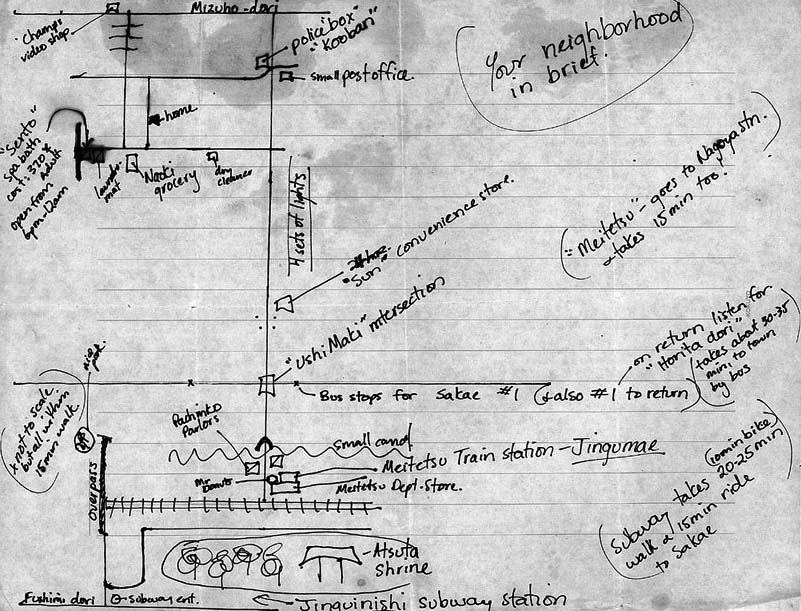 Mizuho-dori
Champ
video shop
police "box"
"Kooban"
small post office.
Your neighborhood
in brief.
home
"Sento"
spa bath
cost: 370 ¥
Adult
open from
6pm-12am
laundro-
mat
Naoki
grocery
dry
cleaner
4 sets of lights
"Sun" convenience store.
"Meitetsu" - goes to Nagoya stn.
& takes 15 min too!
"Ushi Maki" intersection
Bus stops for Sakae #1 (& also #1 to return)
on return listen for
"Horita dori"
takes about 30-35
min, to town
by bus
* not to scale
but all within
15 min walk.
Pachinko
Parlors
small canal
Meitetsu Train station - Jingumae
Mr
Donuts
Meitetsu Dept. Store.
overpass
(10 min bike)
Subway takes 20-25 min
walk & 15 min ride
to Sakae
Atsuta
Shrine
Fushimi dori
subway ent.
Jinguinishi subway station